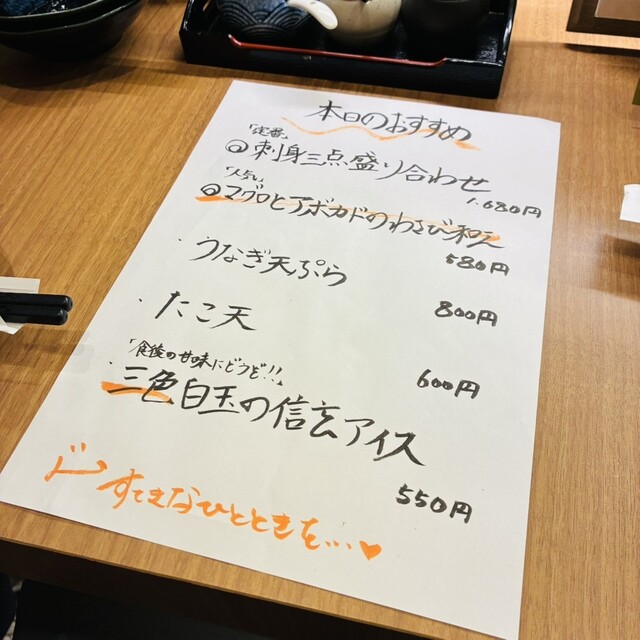 本日のおすすめ
「定番」
◎刺身三点盛り合わせ
1.680円
「人気」
◎マグロとアボカドのわさび和え
580円
・うなぎ天ぷら
800円
・たこ天
600円
「食後の甘味にどうぞ!!」
・三色白玉の信玄アイス
550円
すてきなひとときを…♥